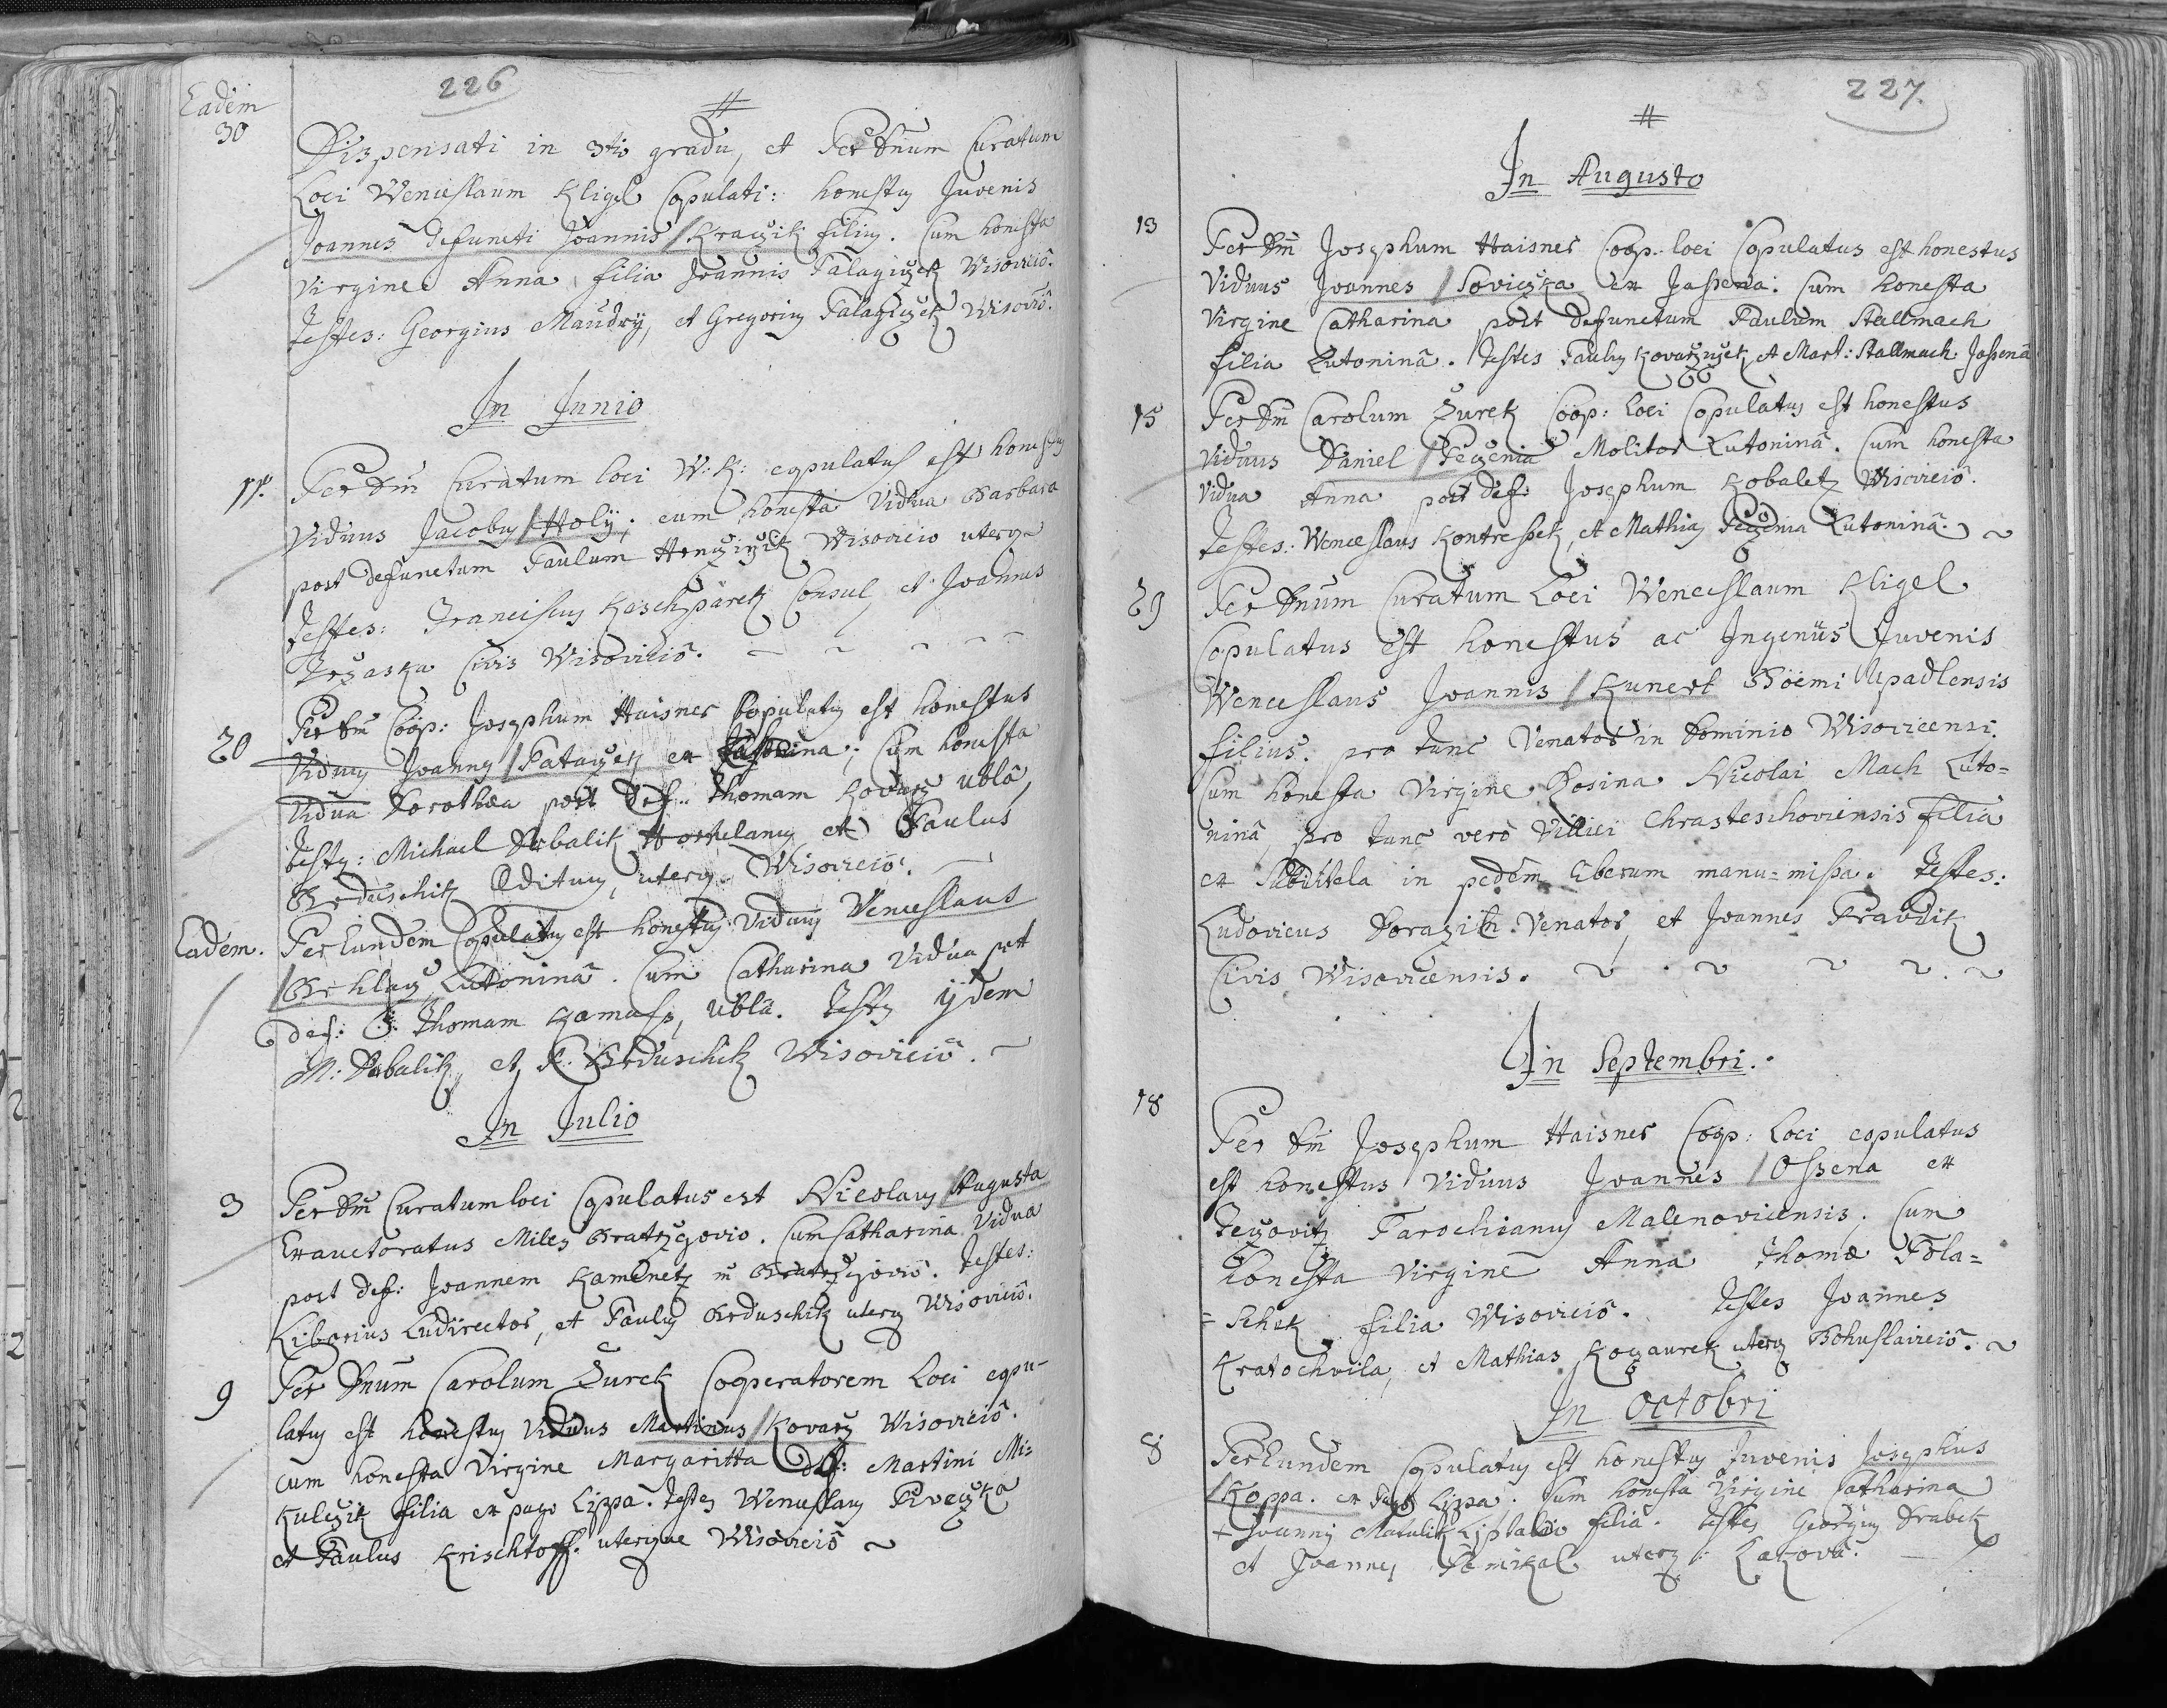 226
Eadem
30
Dispensati in 3tio gradu, et Per Dnum Curatum
Loci Wenceslaum Kligel Copulati: honestus Juvenis
Joannes defuncti Joannis Kraczik filius. Cum honesta
Virgine Anna filia Joannis Talagiczek Wisovicio.
Testes: Georgius Maudry, et Gregorius Talagiczek Wisovicio.
In Junio
11. Per Dm Curatum loci W: K: copulatus est honestus
Viduus Jacobus Holÿ; cum honesta Vidua Barbara
post defunctum Paulum Wisovicio uterq
Testes: Franciscus Kaschparek Consul et Joannes
Trzaska Civis Wisovicio.
20 Per Dm Coop: Josephum Haisner Copulatus est honestus
Viduus Joannes Pataczek ex; Cum honesta
Vidua Dorothea post Def: Thomam Kovarz Ubla,
Testes: Michael Dubalik et Paulus
Brduschik Ædituus, uterq Wisovicio.
Eadem. Per Eundem Copulatus est honestus Viduus Venceslaus
Lutonina. Cum Catharina Vidua post
def: Thomam, Ubla. Testes ijdem
M: Dubalik, et P. Brduschik Wisovicio.
In Julio
3 Per Dm Curatum loci Copulatus est Nicolaus Augusta
Exauctoratus Miles Bratrzegovio. Cum Catharina Vidua
post def: Joannem Kamenetz in Bratrzegovio. Testes:
Liborius Ludirector, et Paulus Brduschik uterq Wisovicio.
9 Per Dnum Carolum Zurek Cooperatorem Loci copu-
latus est honestus Viduus Martinus Kovarz Wisovicio.
cum honesta Virgine Margaritta def: Martini Mi-
kulczik filia ex pago Lippa. Testes Wenceslaus Piveczka
et Paulus Krischtoff. uterque Wisovicio
227.
In Augusto
13 Per Dm Josephum Haisner Coop: loci Copulatus est honestus
Viduus Joannes Soviczka ex Jassena. Cum honesta
Virgine Catharina post defunctum Paulum Stallmach
filia Lutonina. Testes Paulus Kovarziczek et Mart: Stallmach Jassena
15 Per Dm Carolum Zurek Coop: loci Copulatus est honestus
Viduus Daniel Peczenia Molitor Lutonina. Cum honesta
Vidua Anna post def: Josephum Kobaletz Wisovicio.
Testes: Wenceslaus, et Mathias Peczenia Lutonina.
29 Per Dnum Curatum Loci Wenceslaum Kligel
Copulatus est honestus ac Ingenŭus Juvenis
Wenceslaus Joannis Kunert Böemi Upadlensis
filius. pro tunc Venator in Dominio Wisovicensi.
Cum honesta Virgine Rosina Nicolai Mach Luto=
nina, pro tunc vero Villici Chrasteschoviensis filia
ex Subditela in pedem liberum manu=missa. Testes:
Ludovicus Venator, et Joannes Hravdik
Civis Wisovicensis.
In Septembri.
18 Per Dm Josephum Haisner Coop: Loci copulatus
est honestus Viduus Joannes Ossena ex
Teczovitz Parochianus Malenovicensis. Cum
honesta Virgine Anna Thomæ Pola=
=schek filia Wisovicio. Testes Joannes
Kratochvila, et Mathias Kozaurek uterq Bohuslavicio.
In Octobri
8 Per Eundem Copulatus est honestus Juvenis Josephus
Koppa. ex Pago Lippa. Cum honesta Virgine Catharina
+ Joannis Matulik Liptalio filia. Testes Georgius Drabek
et Joannes uterq: Lakova.